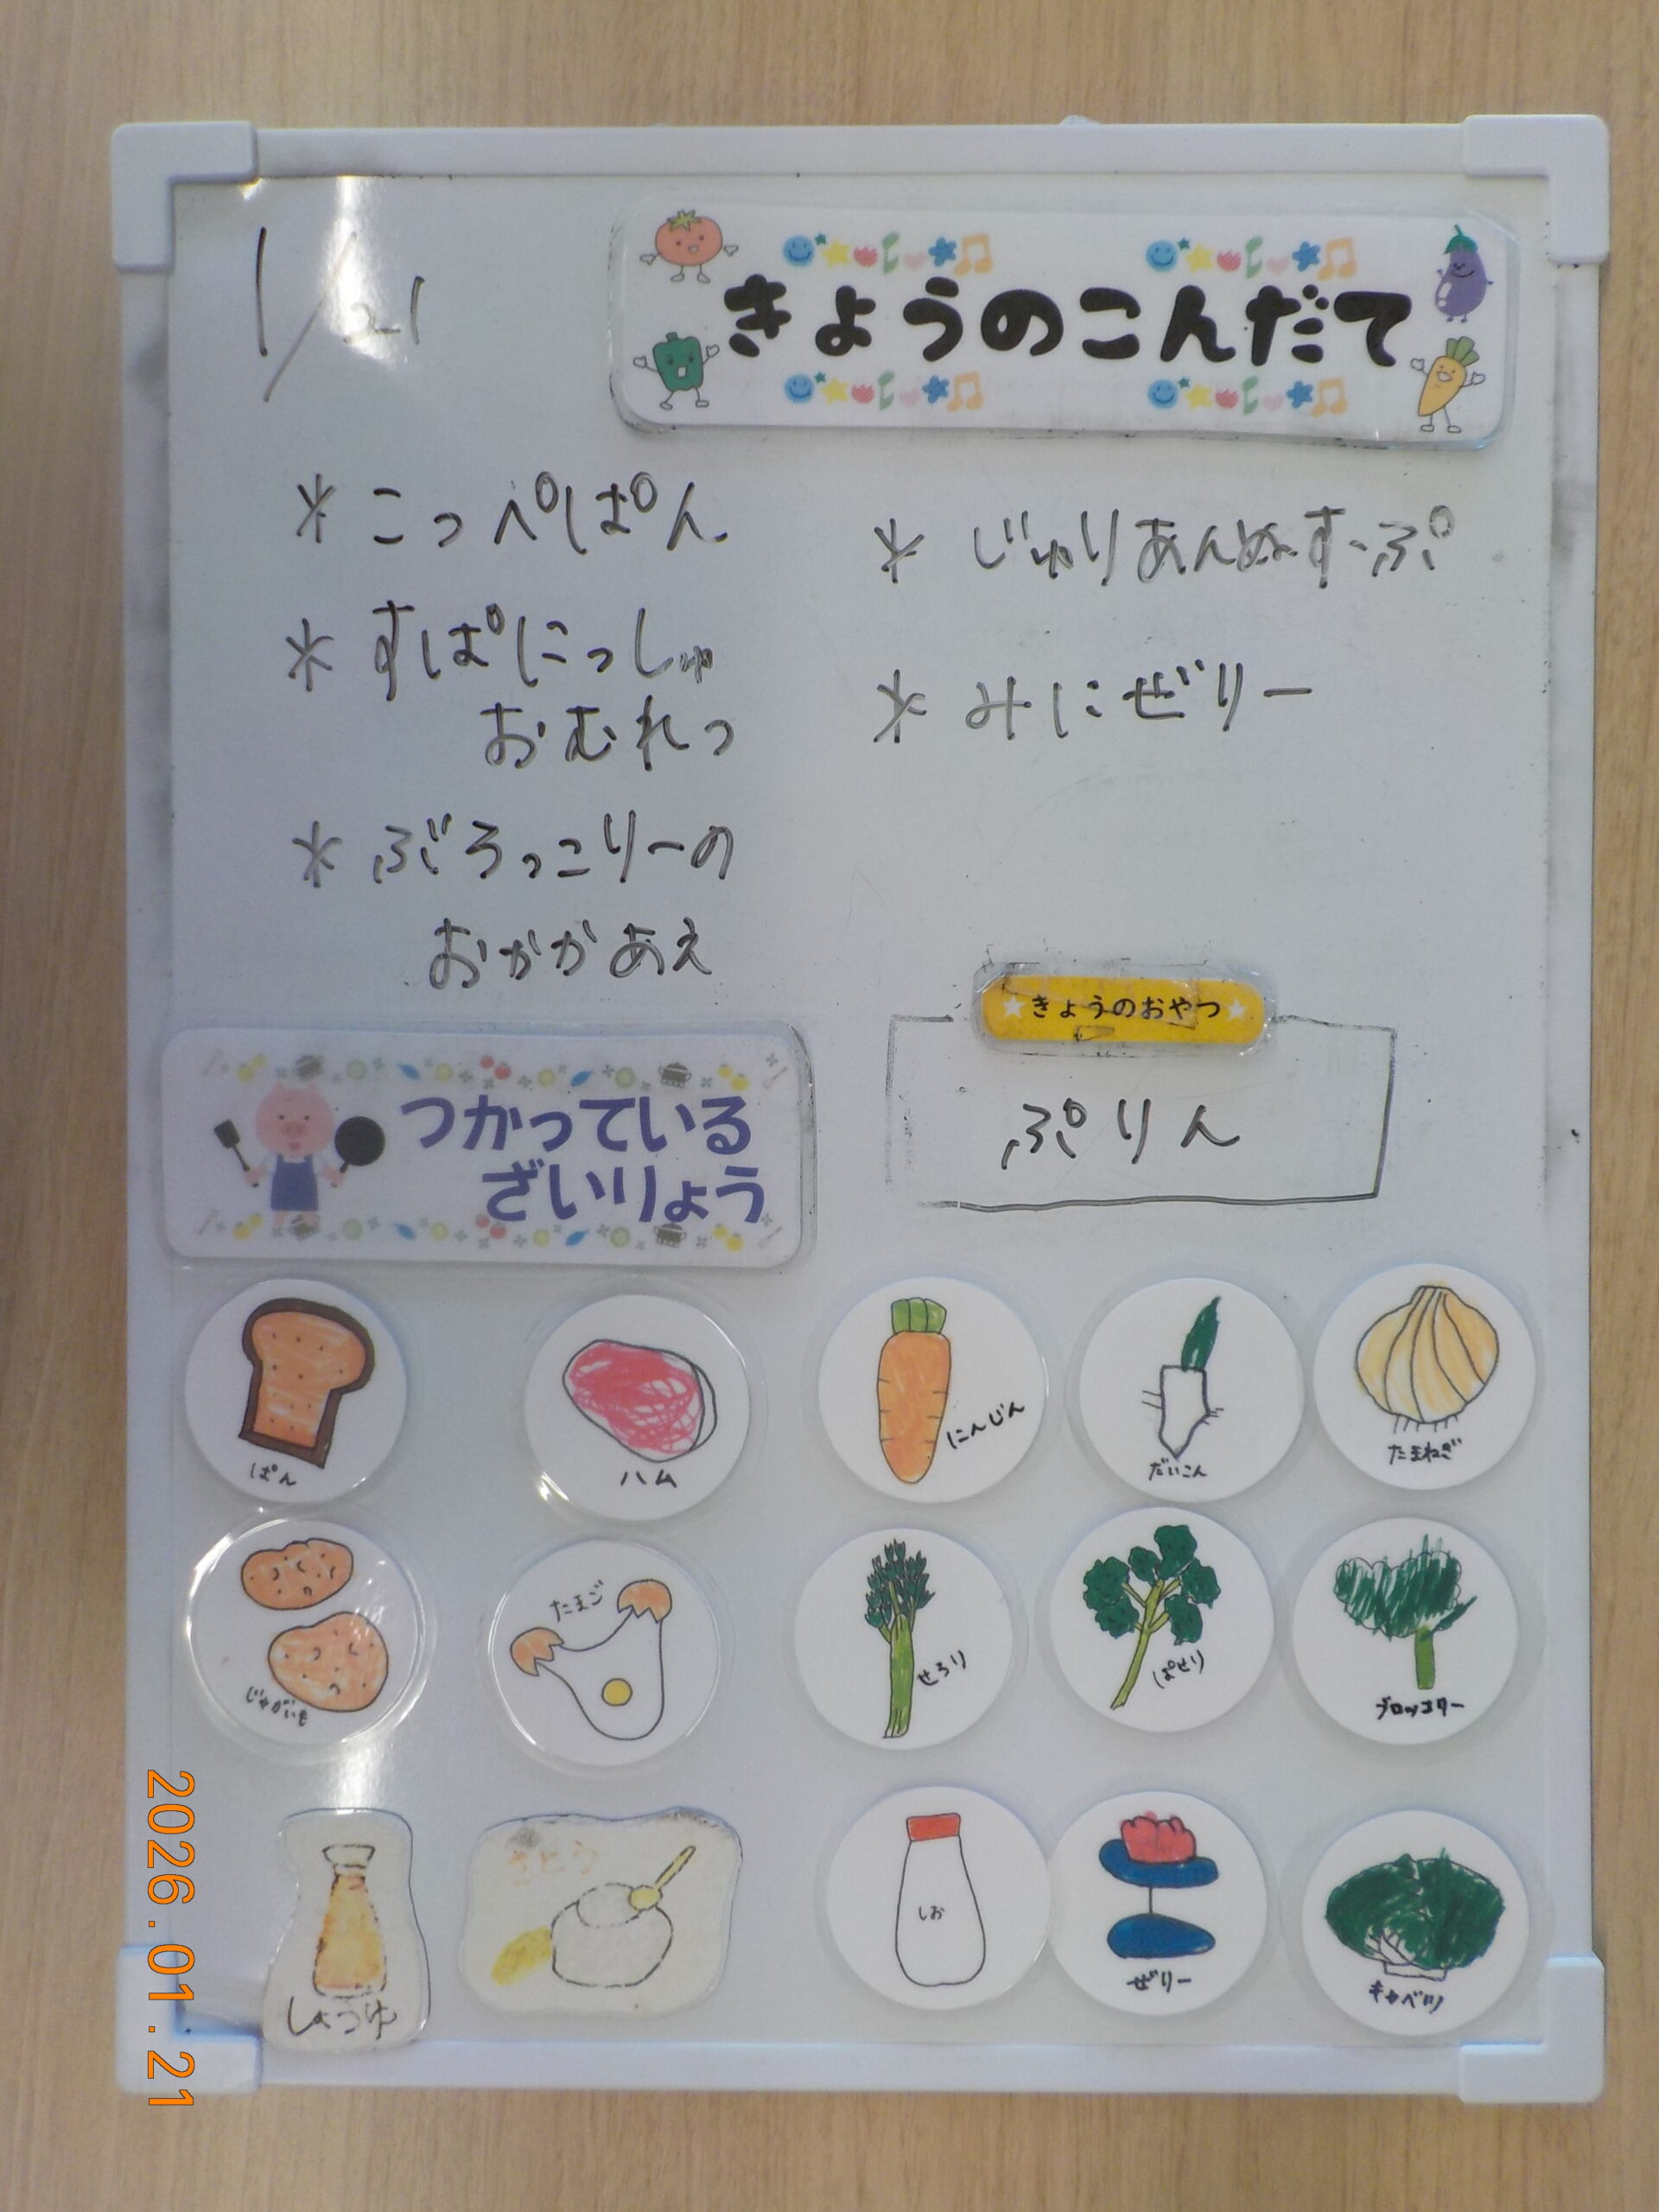 1/21
きょうのこんだて
* こっぺぱん
* すぱにっしゅ
おむれつ
* ぶろっこりーの
おかかあえ
* じゅりあんぬすーぷ
* みにぜりー
★きょうのおやつ★
ぷりん
つかっている
ざいりょう
ぱん
ハム
にんじん
だいこん
たまねぎ
じゃがいも
たまご
せろり
ぱせり
ブロッコリー
しょうゆ
さとう
しお
ぜりー
キャベツ
2026.01.21